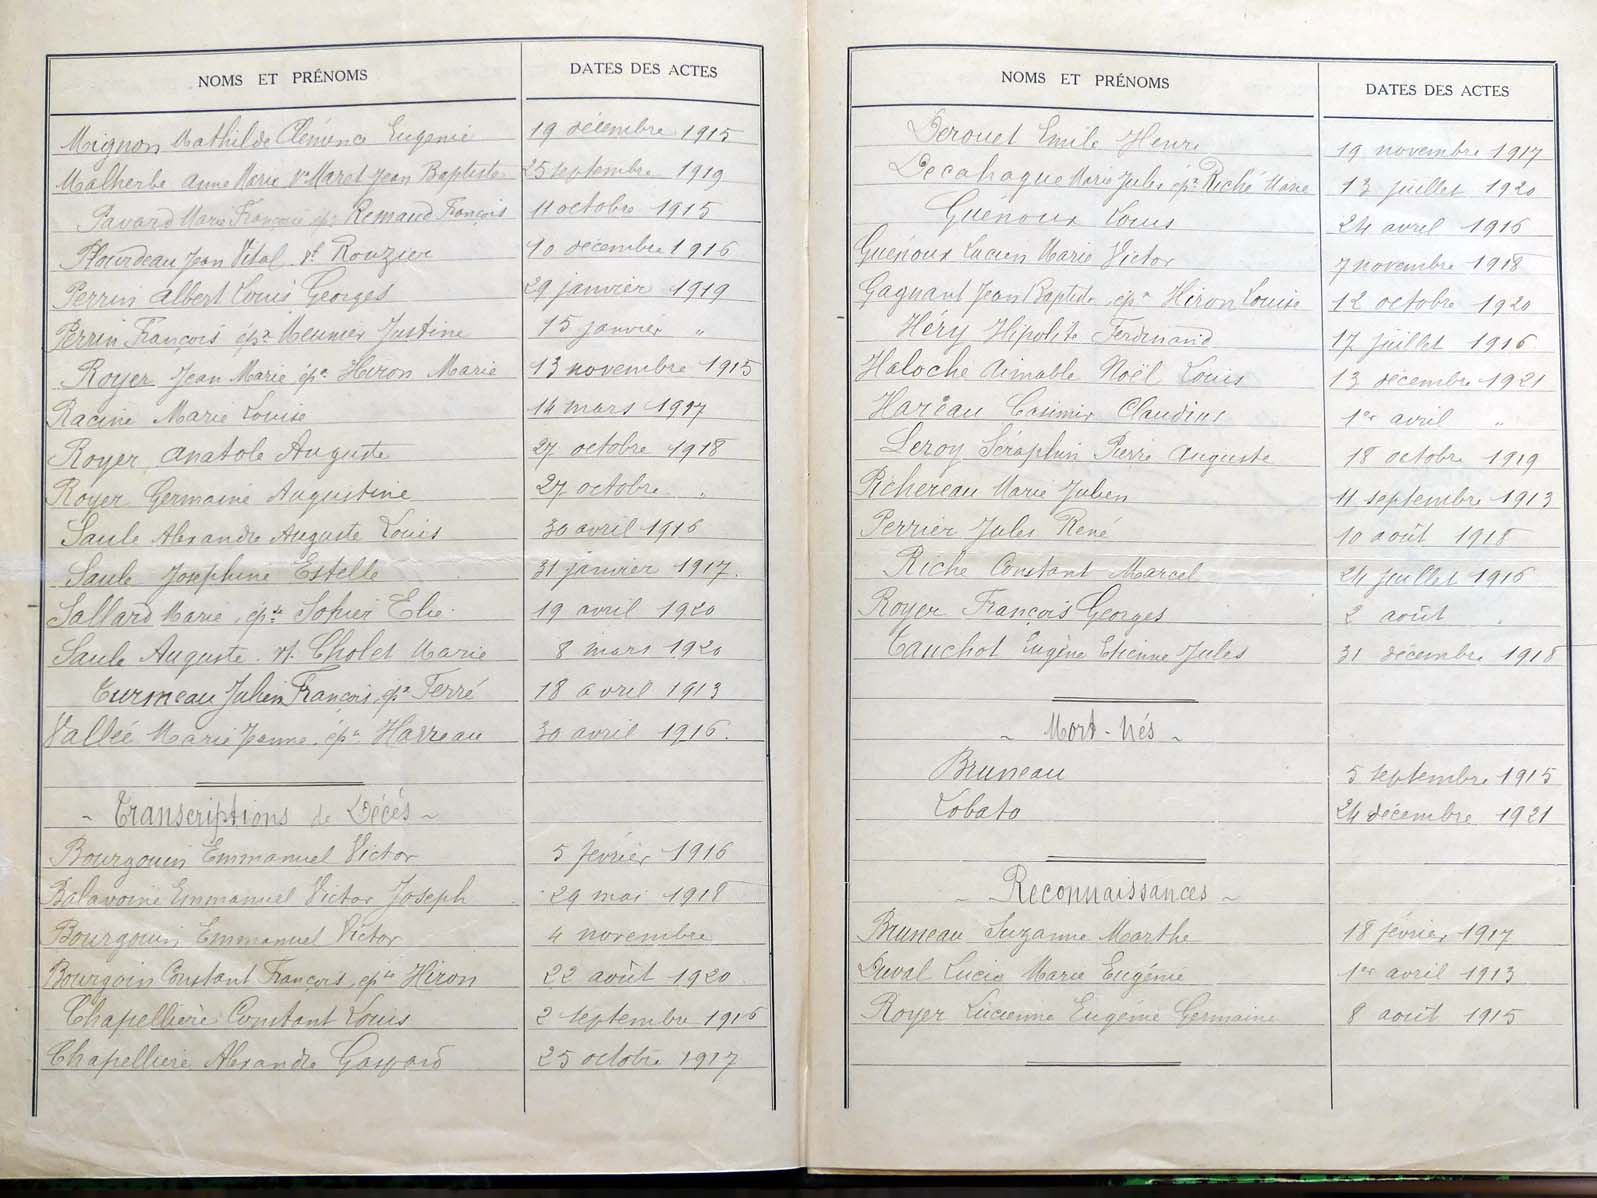 NOMS ET PRÉNOMS DATES DES ACTES
Mignon Mathilde Clémence Eugenie 19 décembre 1915
Malherbe Anne Marie Vve Maret Jean Baptiste 25 septembre 1919
Pavard Marie Françoise épse Remaud François 11 octobre 1915
Plourdeau Jean Vital vf Rouzier 10 décembre 1916
Perrin Albert Louis Georges 29 janvier 1919
Perrin François épx Meunier Justine 15 janvier "
Royer Jean Marie épx Hiron Marie 13 novembre 1915
Racine Marie Louise 14 mars 1917
Royer Anatole Auguste 27 octobre 1918
Royer Germaine Augustine 27 octobre "
Saule Alexandre Auguste Louis 30 avril 1916
Saule Josephine Estelle 31 janvier 1917.
Sallard Marie, épse Sohier Elie 19 avril 1920
Saule Auguste vf. Cholet Marie 8 mars 1920
Turmeau Julien François, épx Ferré 18 avril 1913
Vallée Marie Jeanne, épse Harreau 30 avril 1916.
~ Transcriptions de Décés ~
Bourgouin Emmanuel Victor 5 février 1916
Balavoine Emmanuel Victor Joseph 29 mai 1918
Bourgouin Emmanuel Victor 4 novembre
Bourgoin Constant François, épx Hiron 22 août 1920
Chapellière Constant Louis 2 septembre 1916
Chapelliere Alexandre Gaspard 25 octobre 1917
NOMS ET PRÉNOMS DATES DES ACTES
Derouet Emile Henri 19 novembre 1917
Decahague Marie Jules épx Riché Marie 13 juillet 1920
Guénoux Louis 24 avril 1916
Guénoux Lucien Marie Victor 7 novembre 1918
Gagnant Jean Baptiste, épx Hiron Louise 12 octobre 1920
Héry Hipolite Ferdinand 17 juillet 1916
Haloche Aimable Noël Louis 13 décembre 1921
Hareau Casimir Claudius 1er avril "
Leroy Séraphin Pierre Auguste 18 octobre 1919
Richereau Marie Julien 11 septembre 1913
Perrier Jules René 10 août 1918
Riche Constant Marcel 24 juillet 1916
Royer François Georges 2 août "
Tauchot Eugène Etienne Jules 31 décembre 1918
~ Mort-Nés ~
Bruneau 5 septembre 1915
Lobato 24 décembre 1921
~ Reconnaissances ~
Bruneau Suzanne Marthe 18 février 1917
Duval Lucie Marie Eugénie 1er avril 1913
Royer Lucienne Eugénie Germaine 8 août 1915